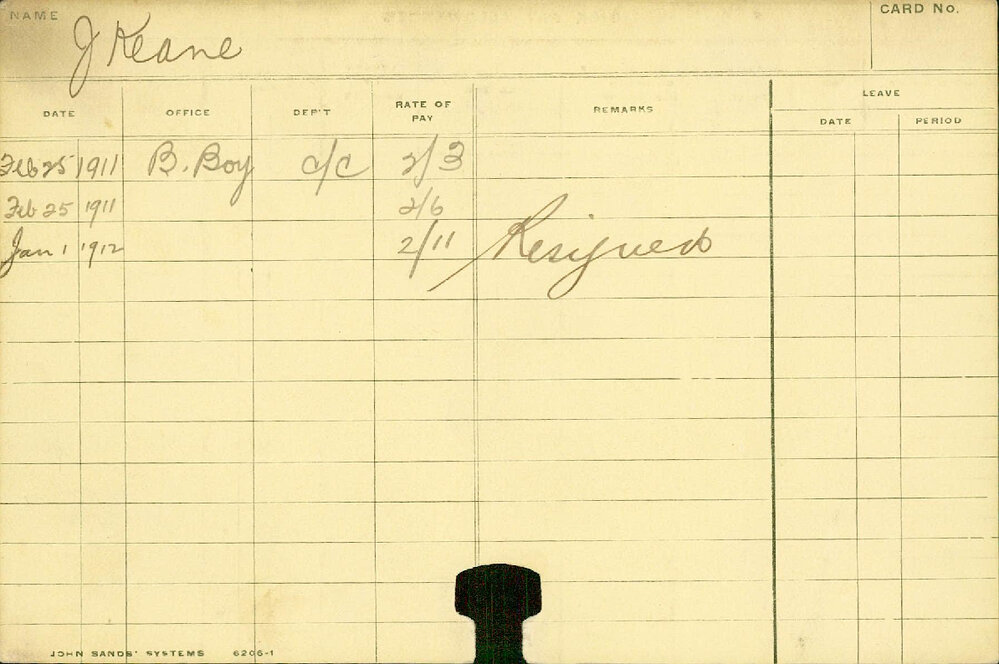 NAME J Keane CARD No.
LEAVE
DATE OFFICE DEP'T RATE OF PAY REMARKS DATE PERIOD
Feb 25 1911 B. Boy c/c 2/3
Feb 25 1911 2/6
Jan 1 1912 2/11 Resigned
JOHN SANDS' SYSTEMS 6206-1